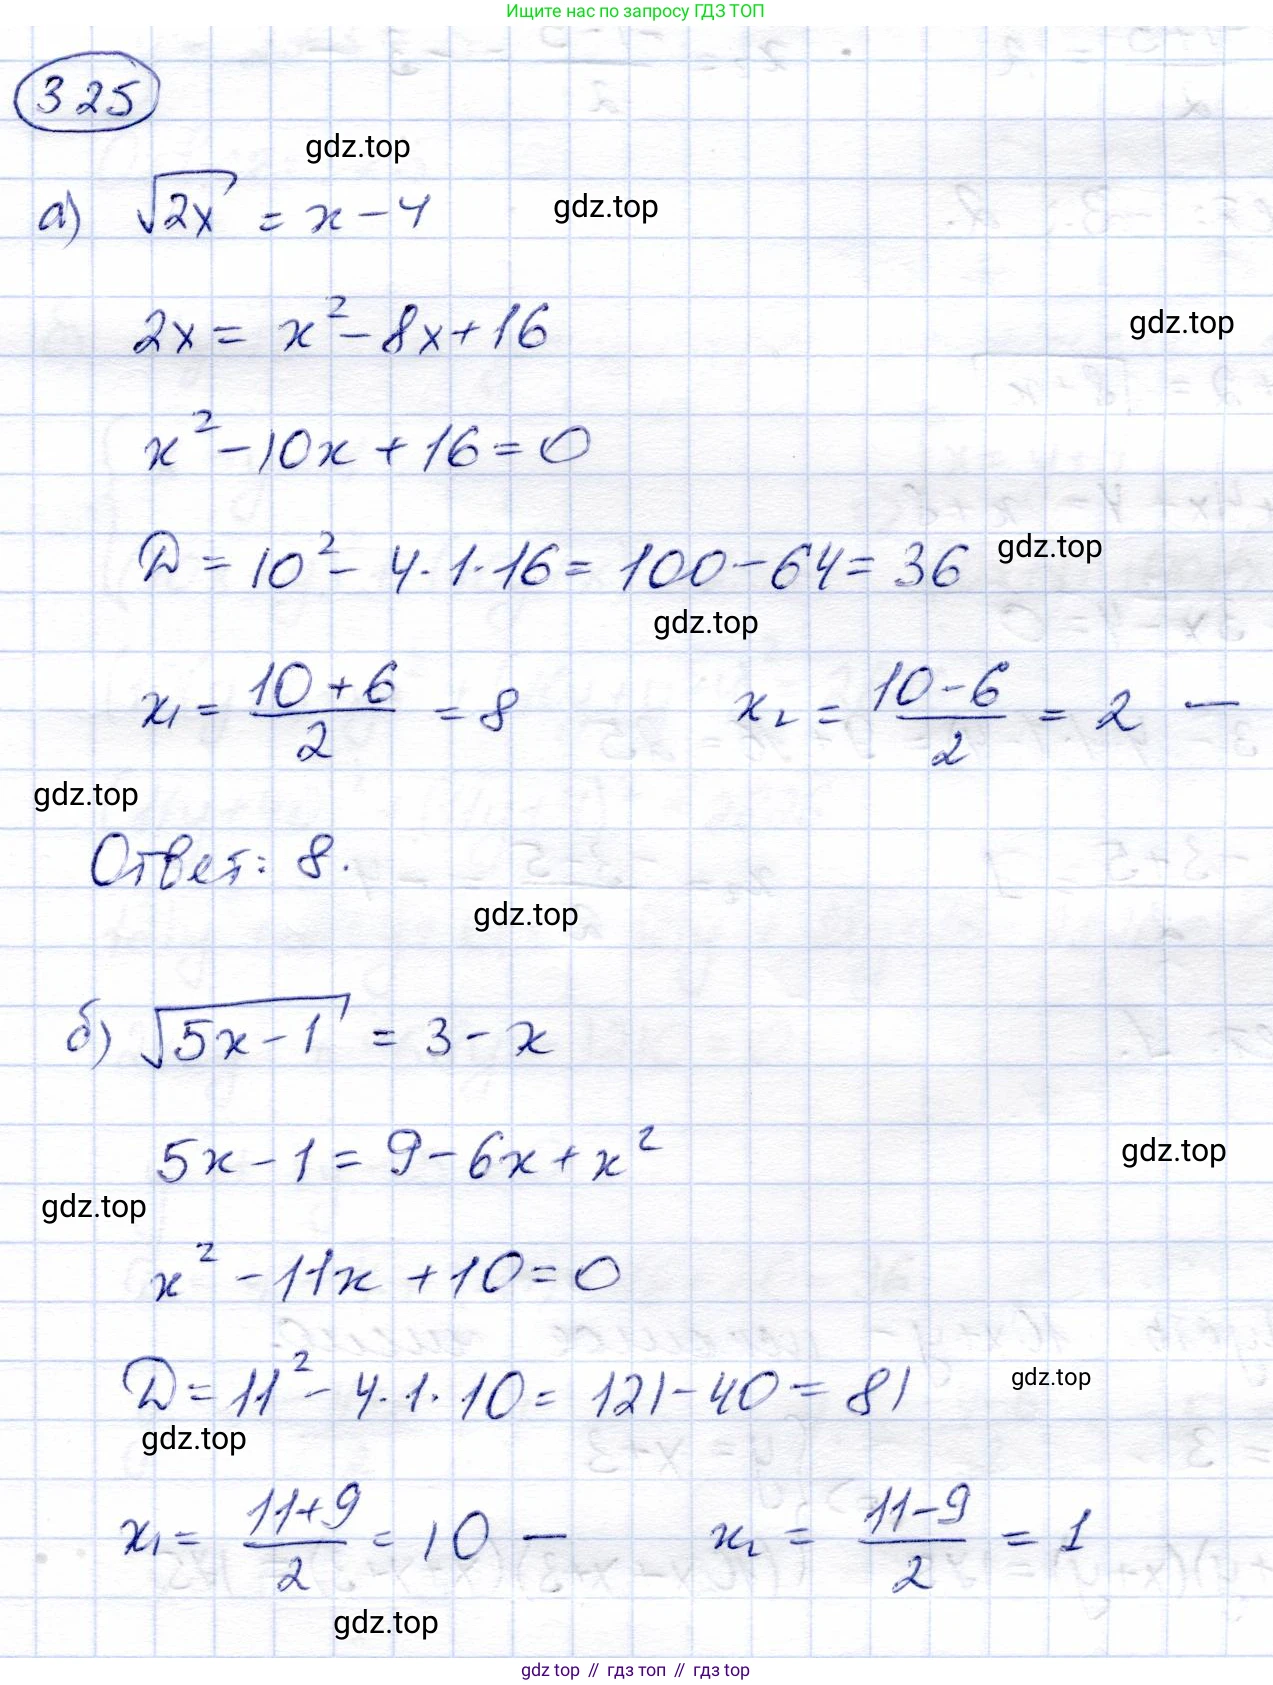 Ищите нас по запросу ГДЗ ТОП
325
gdz.top
а) √2x = x - 4
gdz.top
2x = x² - 8x + 16
gdz.top
x² - 10x + 16 = 0
D = 10² - 4·1·16 = 100 - 64 = 36
gdz.top
gdz.top
x₁ = (10 + 6)/2 = 8 x₂ = (10 - 6)/2 = 2 —
gdz.top
Ответ: 8.
gdz.top
б) √5x - 1 = 3 - x
5x - 1 = 9 - 6x + x²
gdz.top
gdz.top
x² - 11x + 10 = 0
D = 11² - 4·1·10 = 121 - 40 = 81
gdz.top
gdz.top
x₁ = (11 + 9)/2 = 10 — x₂ = (11 - 9)/2 = 1
gdz.top
gdz top // гдз топ // гдз top